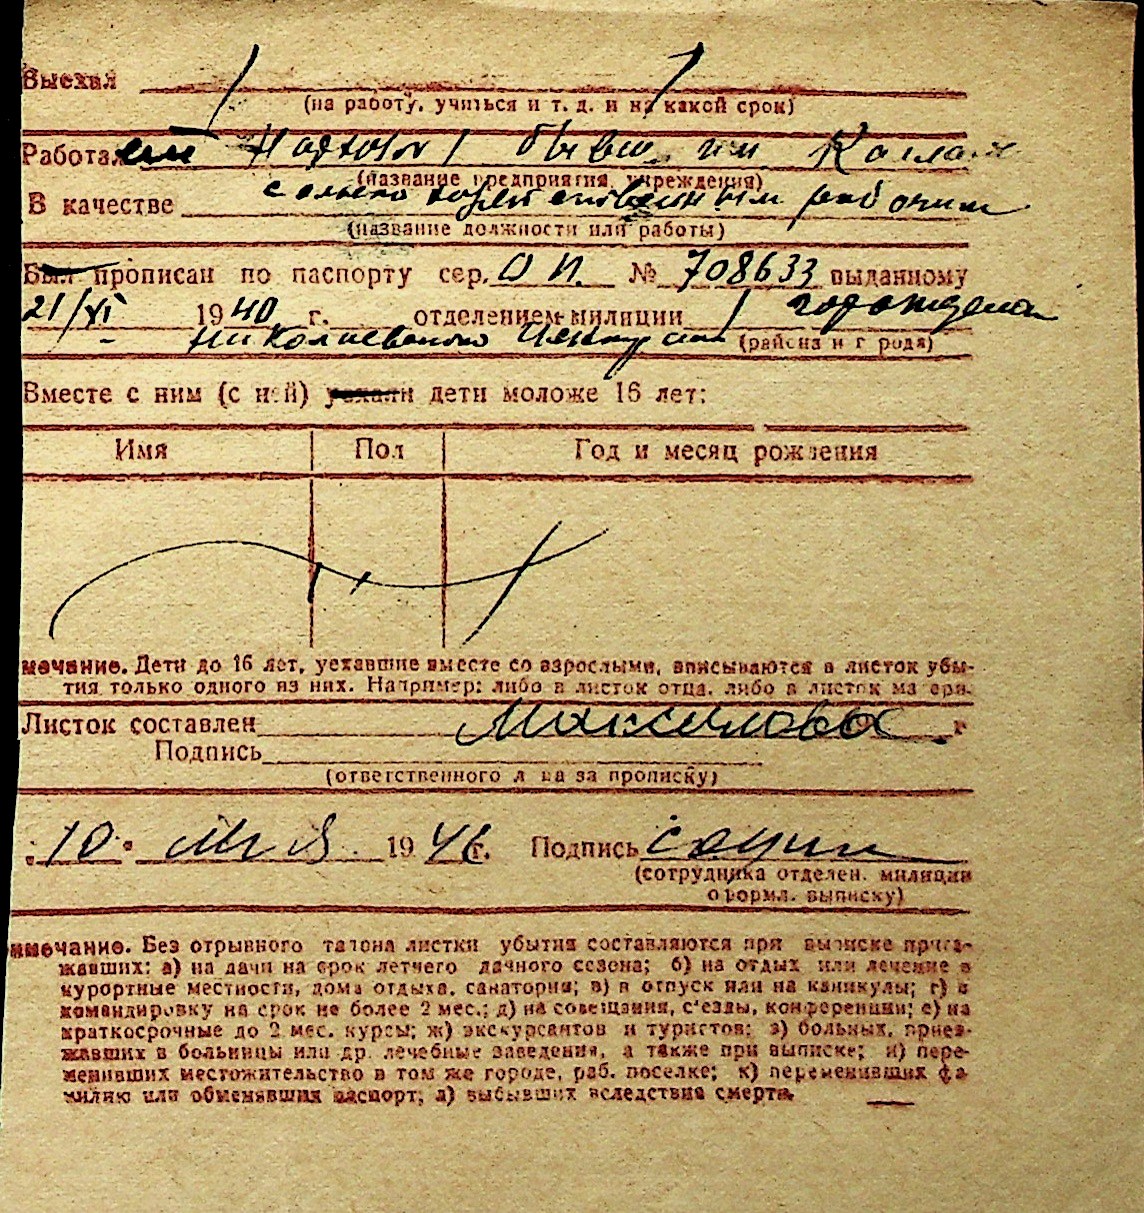 Выехал
(на работу, учиться и т. д. и на какой срок)
Работал
(название предприятия, учреждения)
В качестве сельскохозяйственным рабочим
(название должности или работы)
Был прописан по паспорту сер. № 708633 выданному
21/XI 1940 г. отделением милиции
(района и г рода)
Вместе с ним (с ней) уехали дети моложе 16 лет:
Имя Пол Год и месяц рождения
мечание. Дети до 16 лет, уехавшие вместе со взрослыми, вписываются в листок убы-
тия только одного из них. Например: либо в листок отца, либо в листок матери.
Листок составлен г
Подпись
(ответственного лица за прописку)
"10" 1946 г. Подпись
(сотрудника отделен. милиции
оформл. выписку)
имечание. Без отрывного талона листки убытия составляются при выписке приез-
жавших: а) на дачи на срок летнего дачного сезона; б) на отдых или лечение в
курортные местности, дома отдыха, санатории; в) в отпуск или на каникулы; г) в
командировку на срок не более 2 мес.; д) на совещания, с'езды, конференции; е) на
краткосрочные до 2 мес. курсы; ж) экскурсантов и туристов; з) больных, приез-
жавших в больницы или др. лечебные заведения, а также при выписке; и) пере-
менивших местожительство в том же городе, раб. поселке; к) переменивших фа-
милию или обменявших паспорт; л) выбывших вследствие смерти.